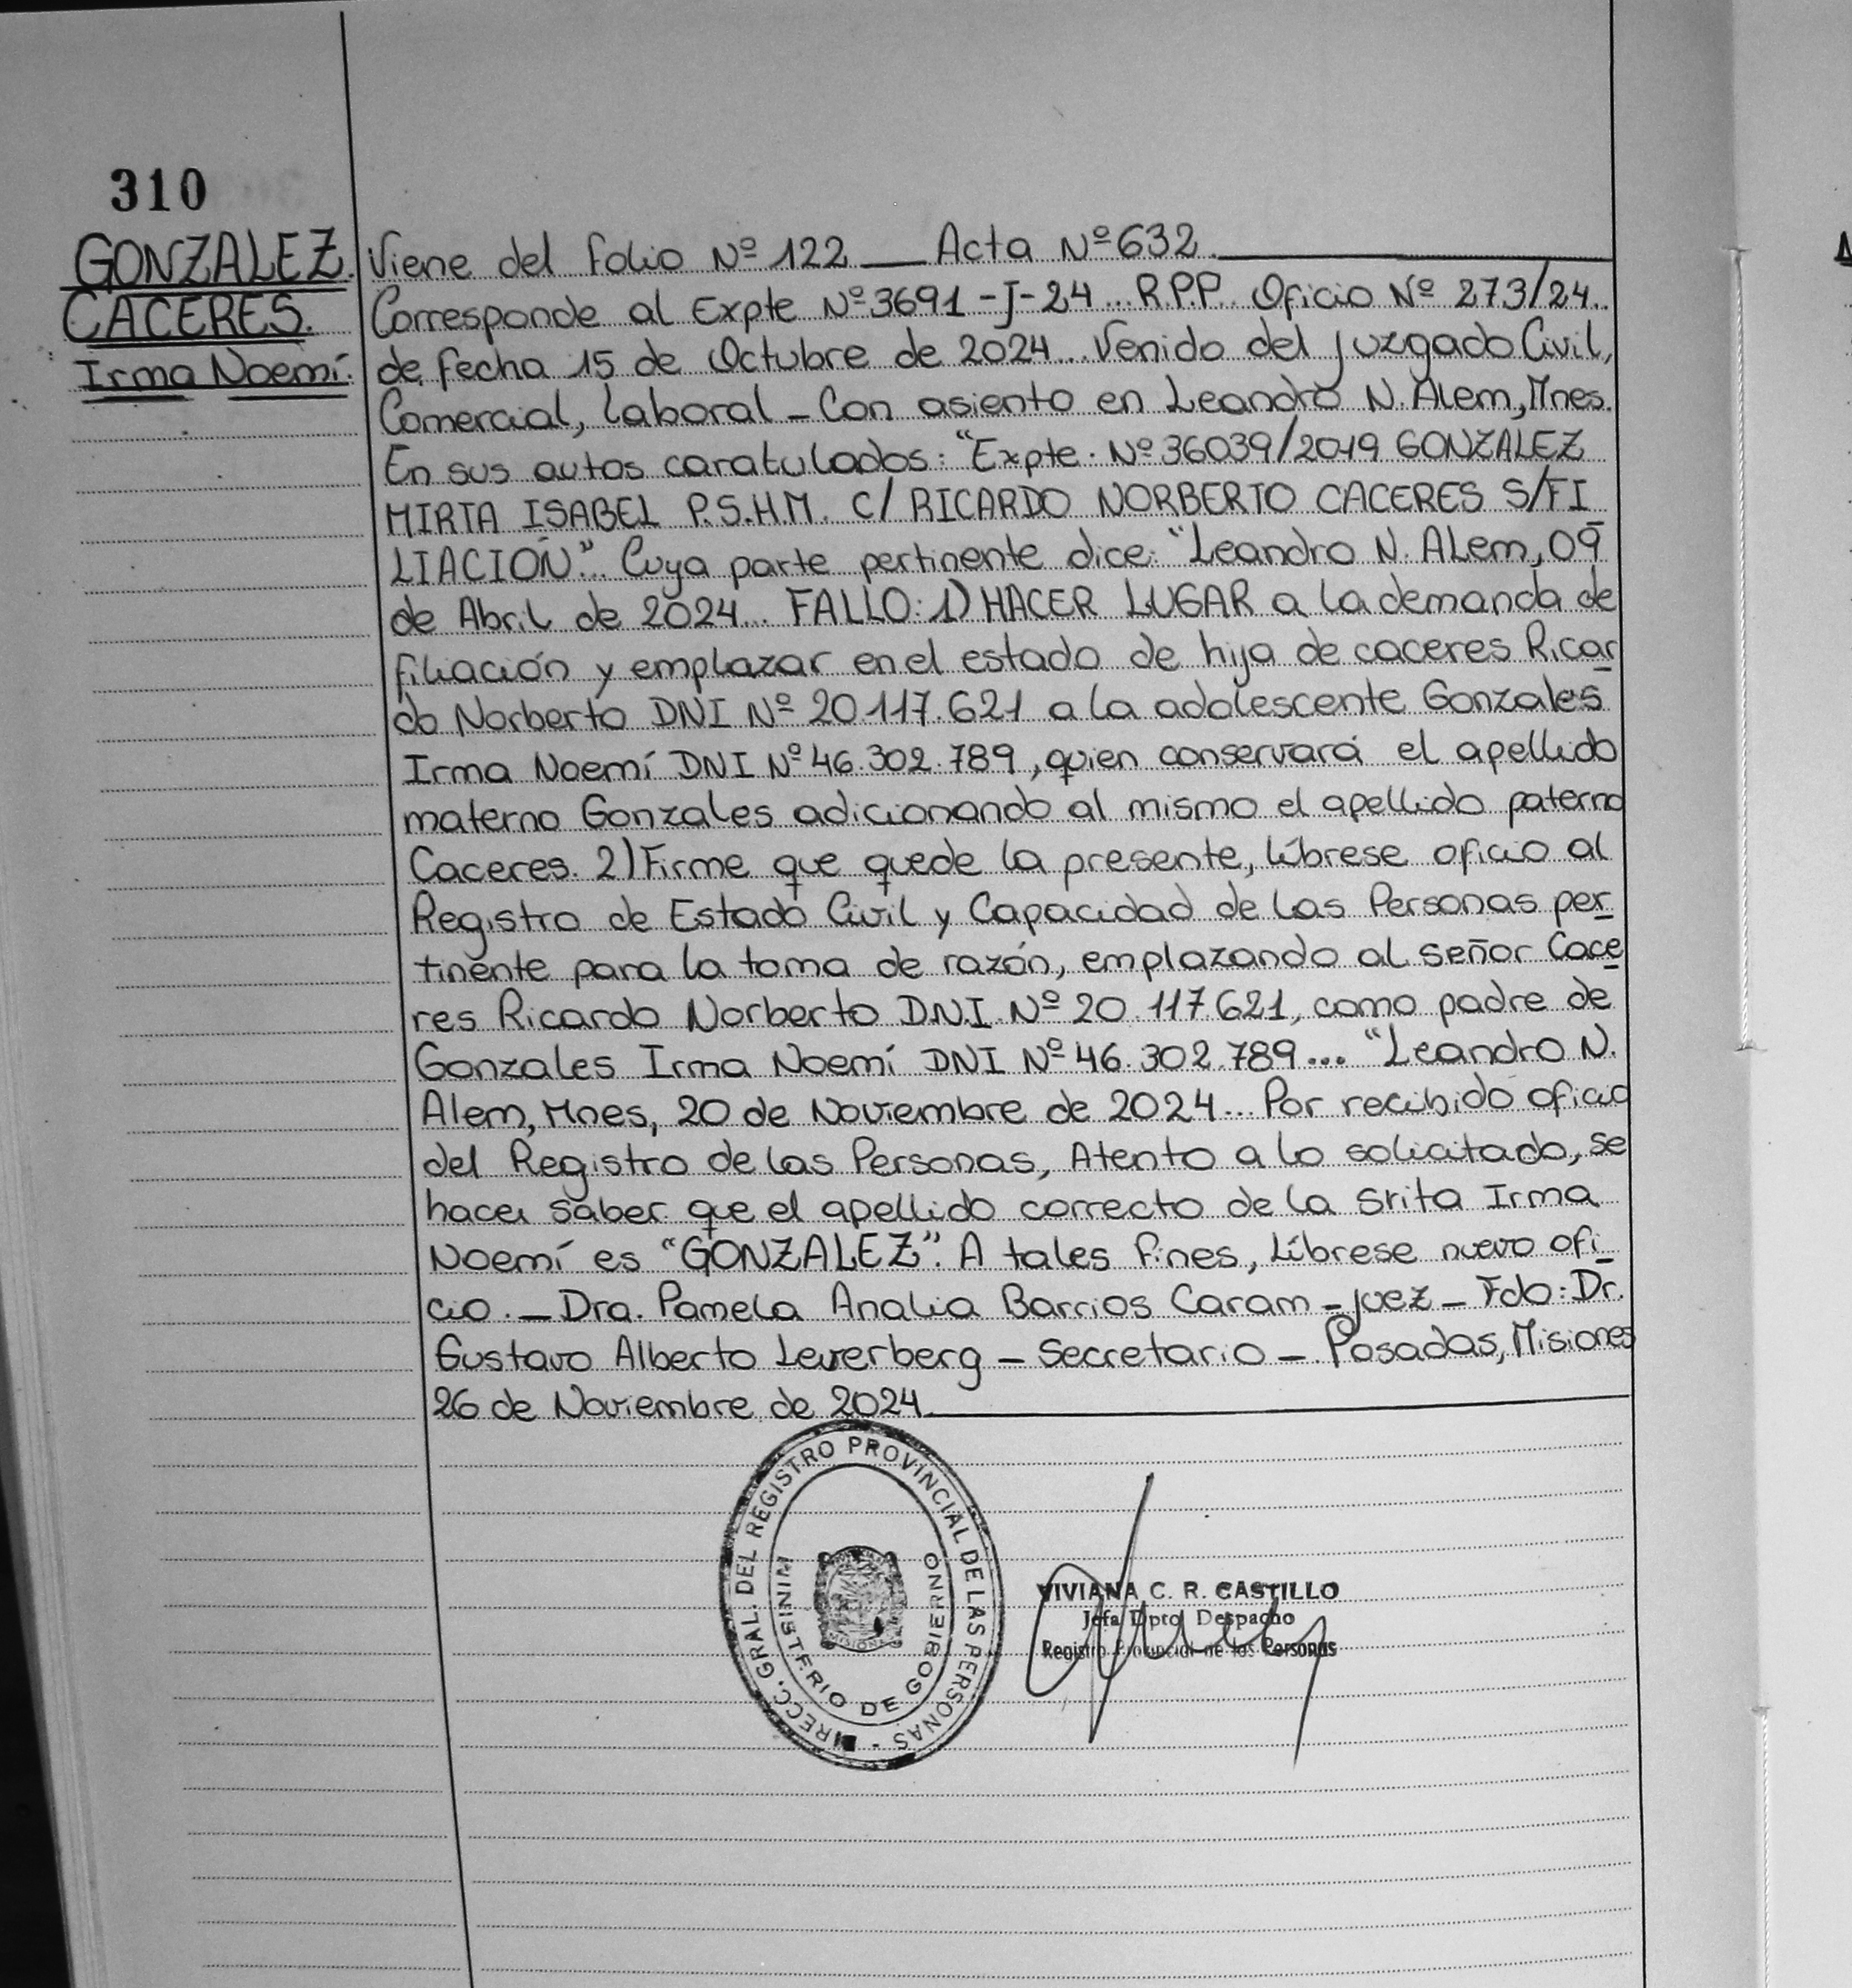 310
GONZALEZ
CACERES.
Irma Noemí.
Viene del Folio Nº 122 __ Acta Nº 632.
Corresponde al Expte Nº 3691-J-24... R.P.P. Oficio Nº 273/24.
de fecha 15 de Octubre de 2024... Venido del Juzgado Civil,
Comercial, Laboral - Con asiento en Leandro N. Alem, Mnes.
En sus autos caratulados: "Expte. Nº 36039/2019 GONZALEZ
MIRTA ISABEL P.S.H.M. C/ RICARDO NORBERTO CACERES S/FI
LIACIÓN". Cuya parte pertinente dice: "Leandro N. Alem, 09
de Abril de 2024... FALLO: 1) HACER LUGAR a la demanda de
filiación y emplazar en el estado de hija de caceres Ricar
do Norberto DNI Nº 20.117.621 a la adolescente Gonzales
Irma Noemí DNI Nº 46.302.789, quien conservará el apellido
materno Gonzales adicionando al mismo el apellido paterno
Caceres. 2) Firme que quede la presente, líbrese oficio al
Registro de Estado Civil y Capacidad de las Personas per
tinente para la toma de razón, emplazando al señor Cace
res Ricardo Norberto D.N.I. Nº 20.117.621, como padre de
Gonzales Irma Noemí DNI Nº 46.302.789... "Leandro N.
Alem, Mnes, 20 de Noviembre de 2024... Por recibido oficio
del Registro de las Personas, Atento a lo solicitado, se
hace saber que el apellido correcto de la srita Irma
Noemí es "GONZALEZ". A tales fines, Líbrese nuevo ofi
cio. - Dra. Pamela Analia Barrios Caram - Juez - Fdo: Dr.
Gustavo Alberto Leverberg - Secretario - Posadas, Misiones
26 de Noviembre de 2024.
DIRECC. GRAL. DEL REGISTRO PROVINCIAL DE LAS PERSONAS -
MINISTERIO DE GOBIERNO
MISIONES
VIVIANA C. R. CASTILLO
Jefa Dpto. Despacho
Registro Provincial de las Personas